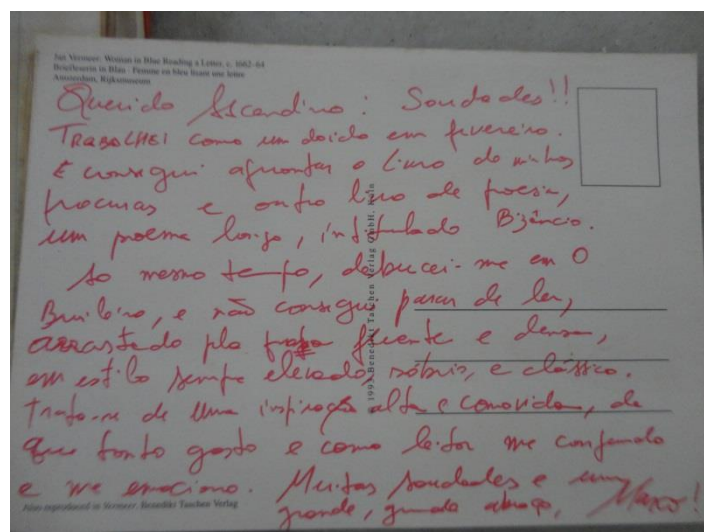 Jan Vermeer. Woman in Blue Reading a Letter, c. 1662-64
Briefleserin in Blau · Femme en bleu lisant une lettre
Amsterdam, Rijksmuseum
Querido Ascendino: Saudades!!
TRABALHEI como um doido em fevereiro.
E consegui aprontar o livro de minhas
poemas e outro livro de poesia,
um poema longo, intitulado Bizâncio.
Ao mesmo tempo, debrucei-me em O
Brasileiro, e não consegui parar de ler,
arrastado pla fluente e densa,
em estilo sempre elevado, sóbrio, e clássico.
Trata-se de uma inspiração alta e comovida, de
que tanto gosto e como leitor me confundo
e me emociono. Muitas saudades e um
grande, grande abraço, Marco!
Film reproduced in Vermeer, Benedikt Taschen Verlag
© 1993 Benedikt Taschen Verlag GmbH, Köln